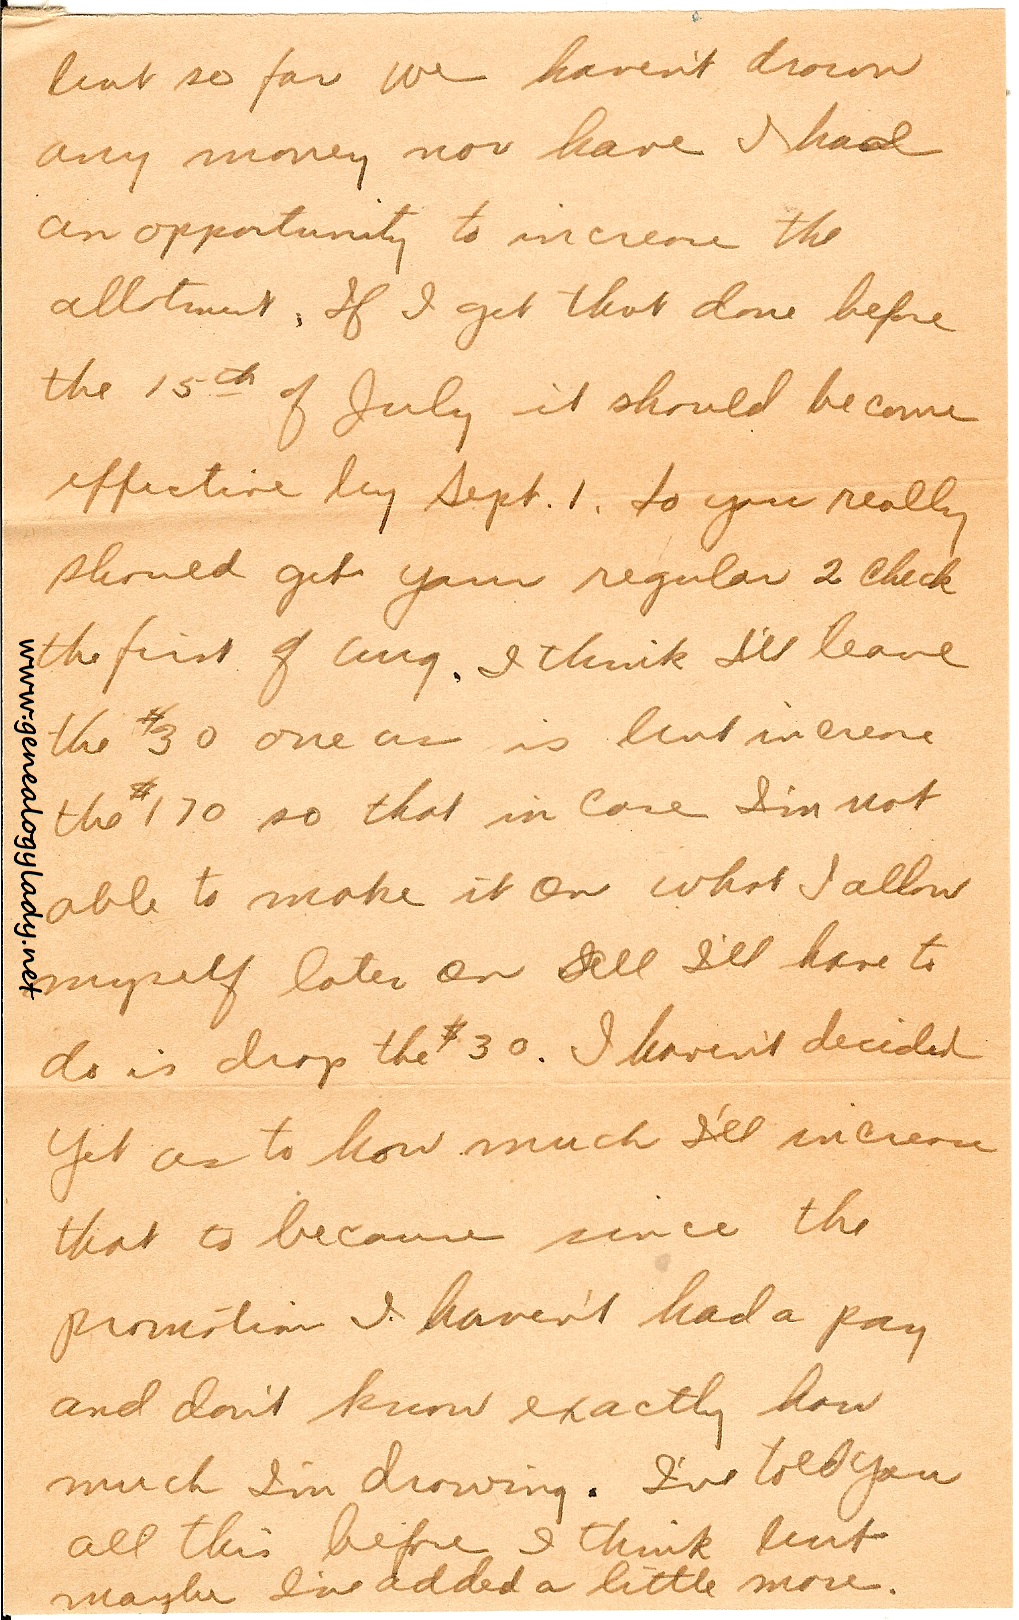 but so far we haven't drawn
any money nor have I had
an opportunity to increase the
allotment. If I get that done before
the 15th of July it should become
effective by Sept. 1. So you really
should get your regular 2 check
the first of Aug. I think I'll leave
the $30 one as is but increase
the $170 so that in case I'm not
able to make it on what I allow
myself later on I'll have to
do is drop the $30. I haven't decided
yet as to how much I'll increase
that to because since the
promotion I haven't had a pay
and don't know exactly how
much I'm drawing. I've told you
all this before I think but
maybe I've added a little more.
www.genealogylady.net